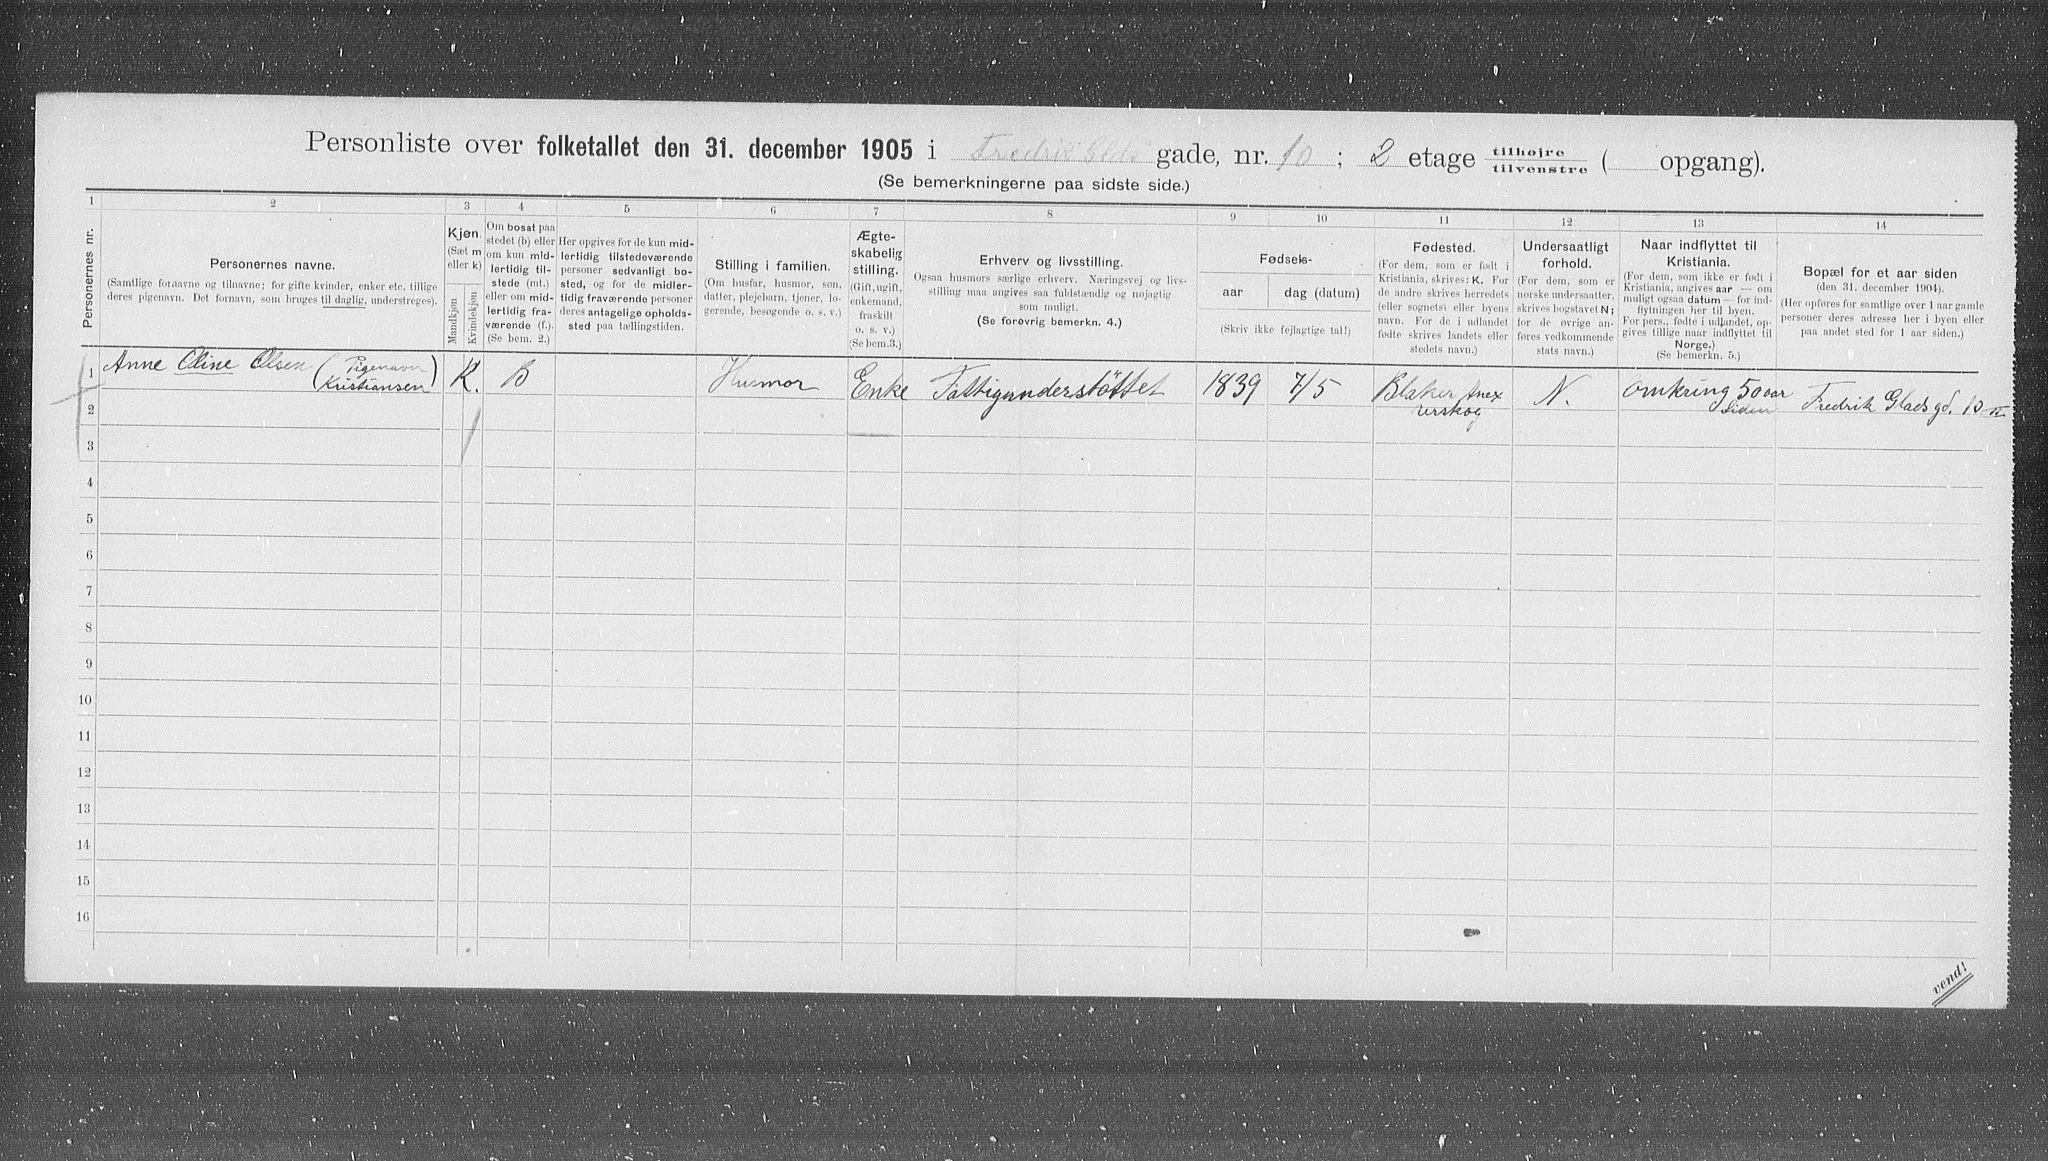 Personliste over folketallet den 31. december 1905 i Fredrik Glads gade, nr. 10 ; 2 etage tilhøjre tilvenstre ( opgang).
(Se bemerkningerne paa sidste side.)
1 2 3 4 5 6 7 8 9 10 11 12 13 14
Personernes nr.
Personernes navne.
(Samtlige fornavne og tilnavne; for gifte kvinder, enker etc. tillige
deres pigenavn. Det fornavn, som bruges til daglig, understreges).
Kjøn.
(Sæt m
eller k)
Mandkjøn
Kvindekjøn
Om bosat paa
stedet (b) eller
om kun mid-
lertidig til-
stede (mt.)
eller om mid-
lertidig fra-
værende (f.).
(Se bem. 2.)
Her opgives for de kun mid-
lertidig tilstedeværende
personer sedvanligt bo-
sted, og for de midler-
tidig fraværende personer
deres antagelige opholds-
sted paa tællingstiden.
Stilling i familien.
(Om husfar, husmor, søn,
datter, plejebarn, tjener, lo-
gerende, besøgende o. s. v.)
Ægte-
skabelig
stilling.
(Gift, ugift,
enkemand,
fraskilt
o. s. v.)
(Se bem. 3.)
Erhverv og livsstilling.
Ogsaa husmors særlige erhverv. Næringsvej og livs-
stilling maa angives saa fuldstændig og nøjagtig
som muligt.
(Se forøvrig bemerkn. 4.)
Fødsels-
aar
dag (datum)
(Skriv ikke fejlagtige tal!)
Fødested.
(For dem, som er født i
Kristiania, skrives: K. For
de andre skrives herredets
(eller sognets) eller byens
navn. For de i udlandet
fødte skrives landets eller
stedets navn.)
Undersaatligt
forhold.
(For dem, som er
norske undersaatter,
skrives bogstavet N;
for de øvrige an-
føres vedkommende
stats navn.)
Naar indflyttet til
Kristiania.
(For dem, som ikke er født i
Kristiania, angives aar — om
muligt ogsaa datum — for ind-
flytningen her til byen.
For pers., fødte i udlandet, op-
gives tillige naar indflyttet til
Norge.)
(Se bemerkn. 5.)
Bopæl for et aar siden
(den 31. december 1904).
(Her opføres for samtlige over 1 aar gamle
personer deres adresse her i byen eller
paa andet sted for 1 aar siden.)
1 Anne Oline Olsen (Pigenavn Kristiansen) K. B Husmor Enke Fattigunderstöttet 1839 7/5 Blaker Anex Urskog N. Omkring 50 aar siden Fredrik Glads gd. 10 II
2
3
4
5
6
7
8
9
10
11
12
13
14
15
16
vend!